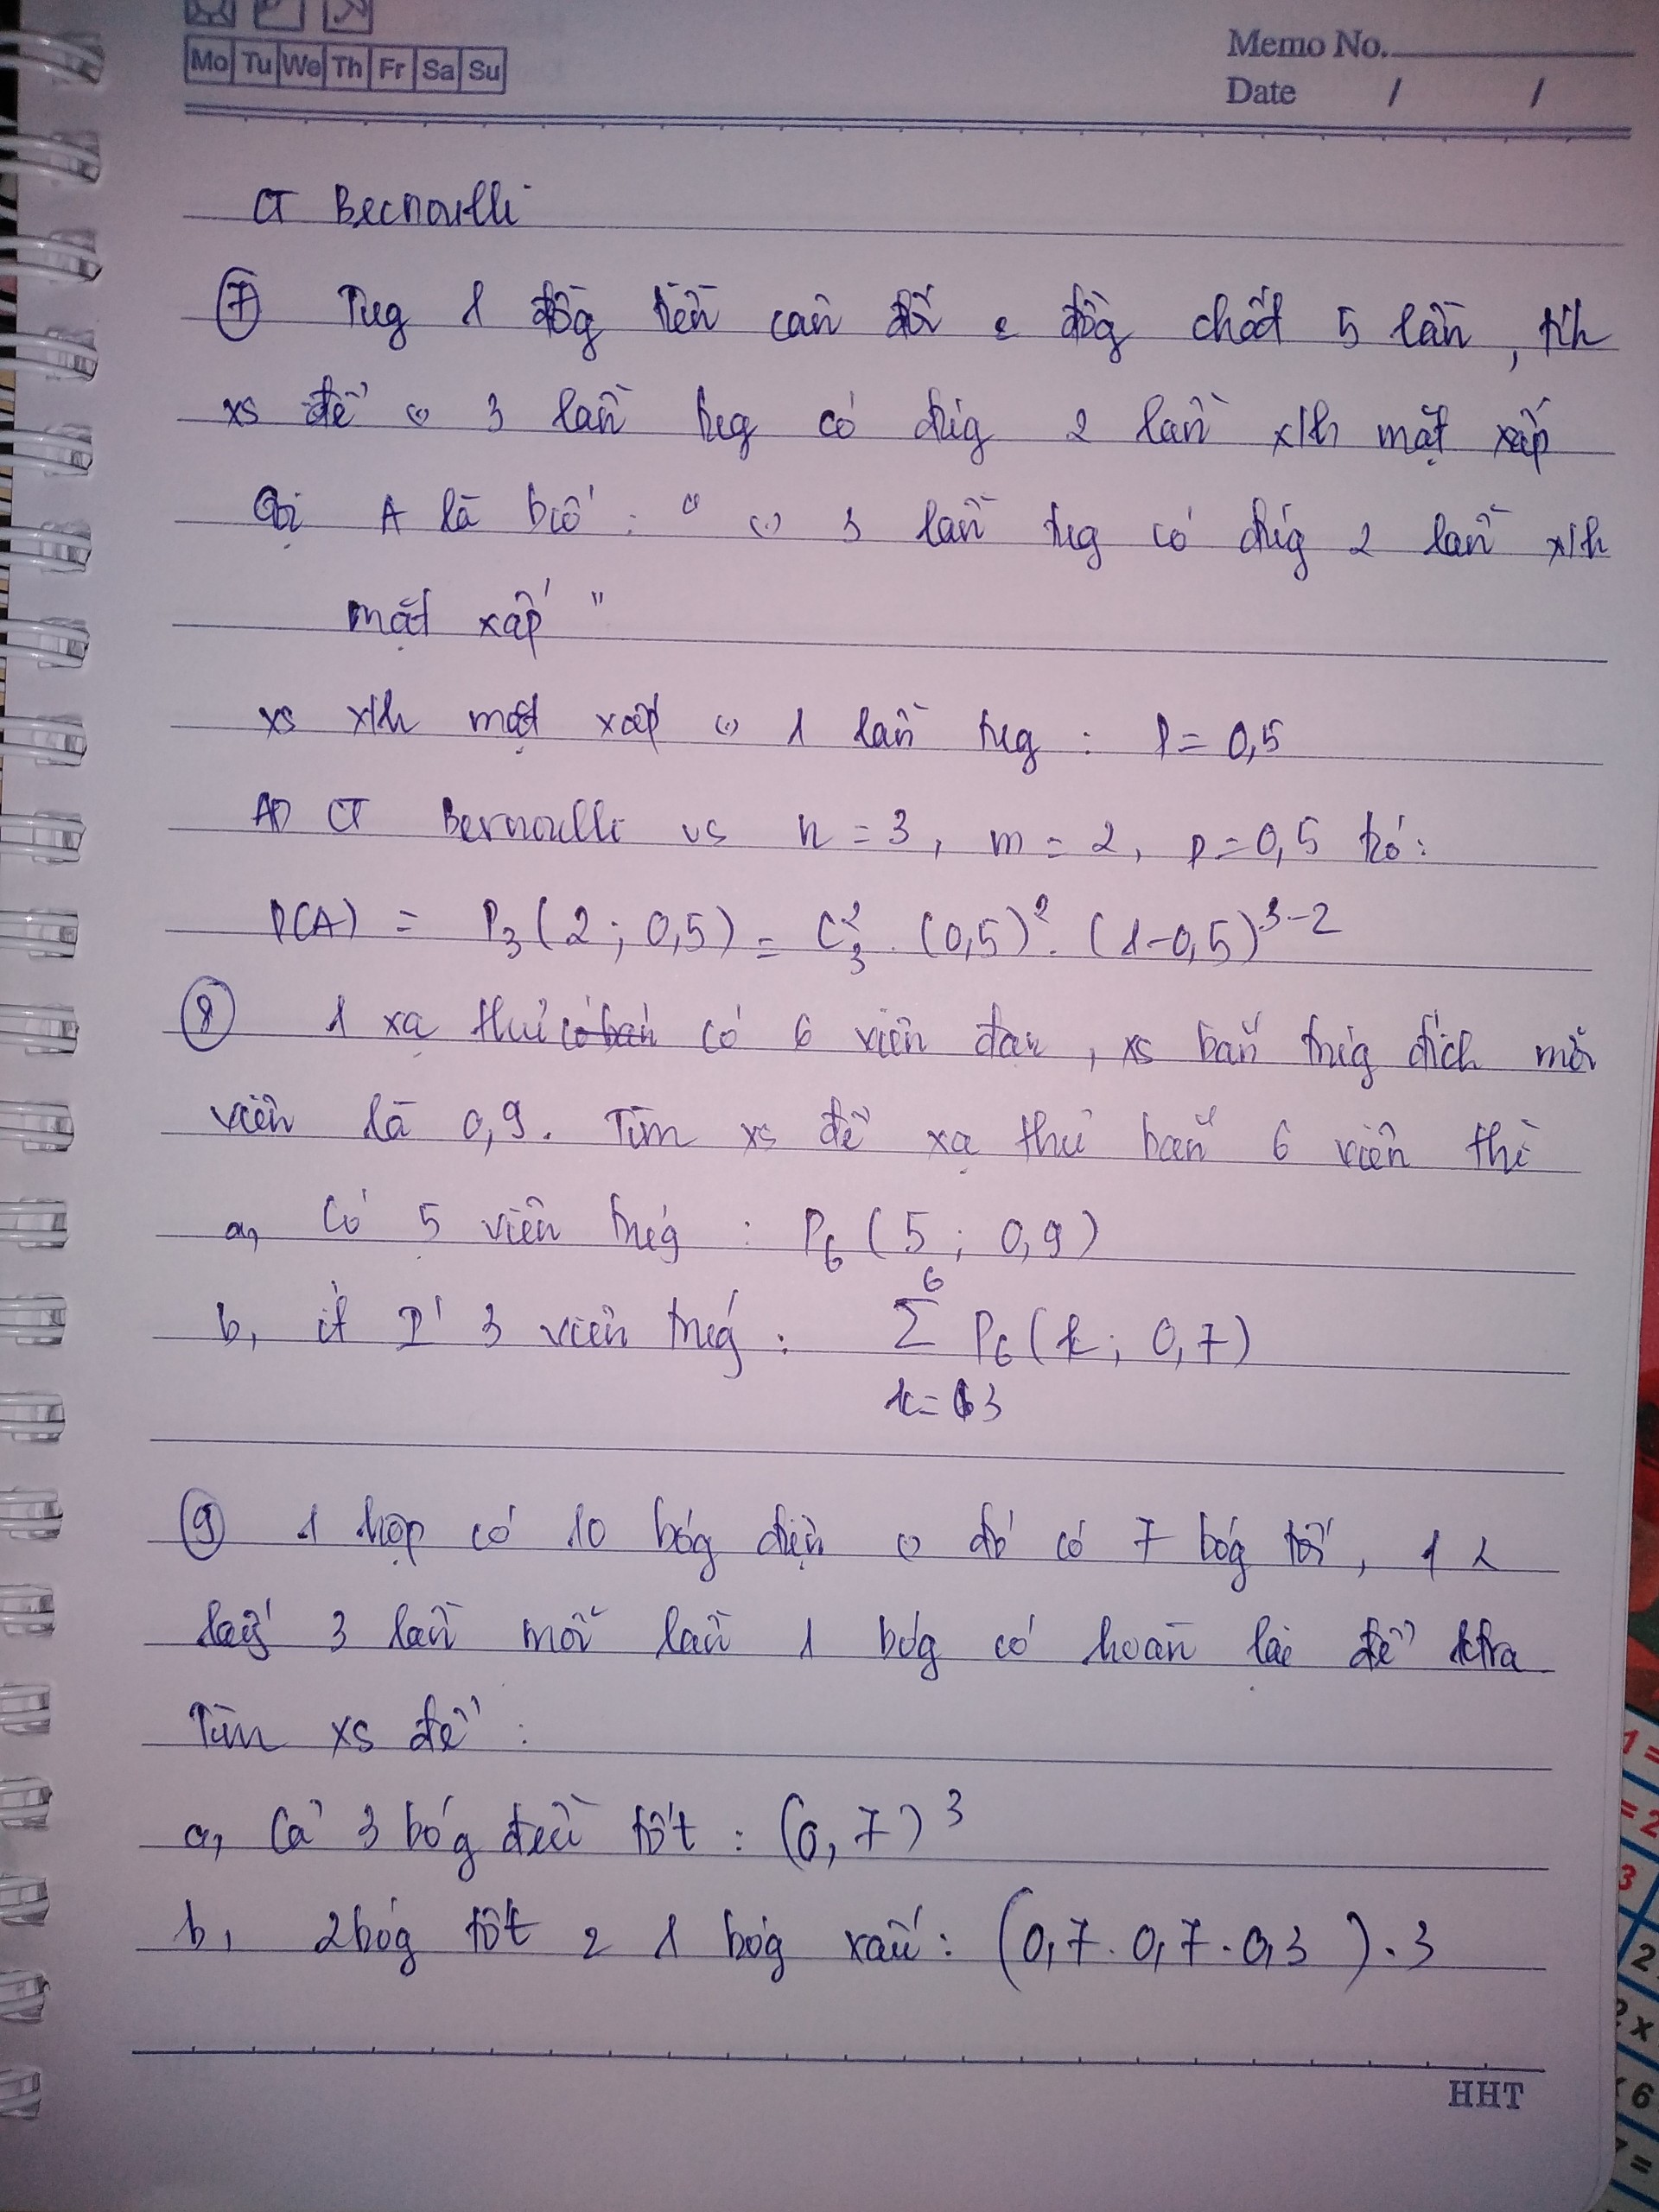 Mo Tu We Th Fr Sa Su
Memo No.
Date / /
CT Bernoulli
⑦ Tug 1 đồg tiền cân đối e đồg chất 5 lần, tíh
xs để 3 lần tug có đúg 2 lần x/h mặt xấp
Gọi A là b/cố : " 3 lần tug có đúg 2 lần x/h
mặt xấp "
xs x/h mặt xấp 1 lần tug : P = 0,5
AD CT Bernoulli vs n = 3, m = 2, p = 0,5 tcó :
P(A) = P₃(2 ; 0,5) = C₃². (0,5)². (1-0,5)³⁻²
⑧ 1 xạ thủ có bắn có 6 viên đạn, xs bắn trúg đích mỗi
viên là 0,9. Tìm xs để xạ thủ bắn 6 viên thì
a, Có 5 viên trúg : P₆(5 ; 0,9)
b, ít 3 viên trúg : 6
Σ P₆(k ; 0,7)
k = 3
⑨ 1 hộp có 10 bóg điện đó có 7 bóg tốt,
lấy 3 lần mỗi lần 1 bóg có hoàn lại để ktra
Tìm xs để :
a, Cả 3 bóg đều tốt : (0,7)³
b, 2 bóg tốt 2 1 bóg xấu : (0,7. 0,7. 0,3) . 3
HHT
1 =
= 2
3
2
2 x
6
=